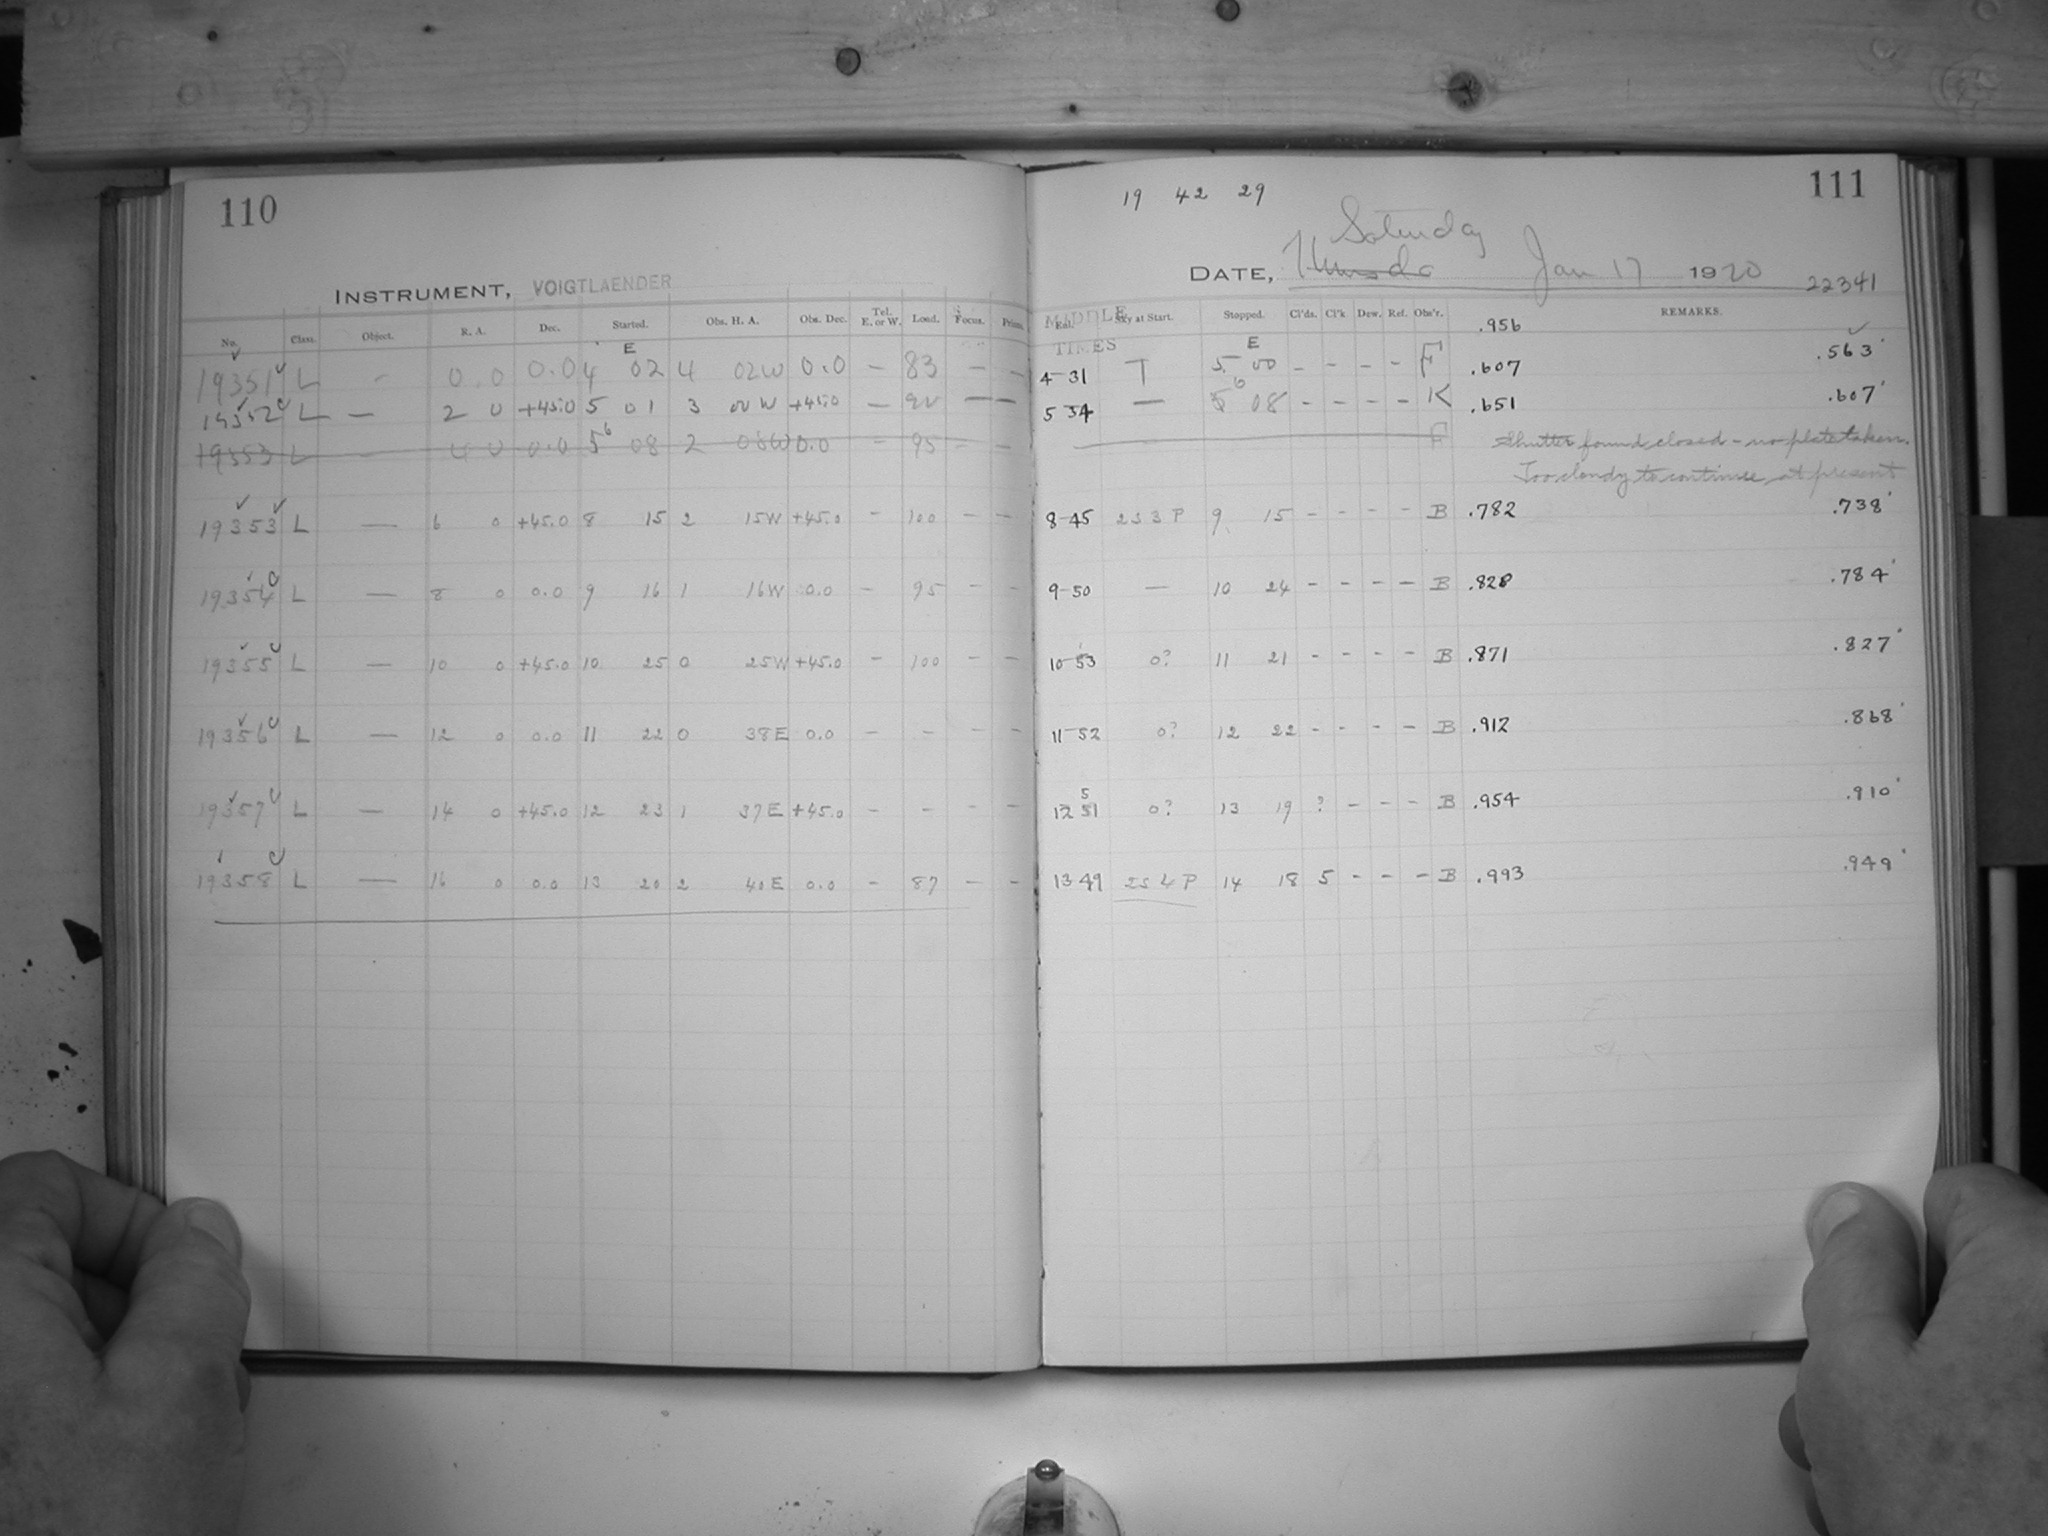 110
INSTRUMENT, VOIGTLAENDER
No. Class. Object. R. A. Dec. Started. Obs. H. A. Obs. Dec. Tel. E. or W. Load. Focus. Prisms.
E
19351 L - 0.0 0.0 4 02 4 02W 0.0 - 83 - -
19352 L - 2 0 +45.0 5 01 3 00 W +45.0 - 90 - -
19353 L - 4 0 0.0 5 6 08 2 08W 0.0 - 95 - -
19353 L - 6 0 +45.0 8 15 2 15W +45.0 - 100 - -
19354 L - 8 0 0.0 9 16 1 16W 0.0 - 95 - -
19355 L - 10 0 +45.0 10 25 0 25W +45.0 - 100 - -
19356 L - 12 0 0.0 11 22 0 38E 0.0 - - - -
19357 L - 14 0 +45.0 12 23 1 37E +45.0 - - - -
19358 L - 16 0 0.0 13 20 2 40E 0.0 - 87 - -
111
19 42 29
Saturday
DATE, Thursda Jan 17 1920 22341
MIDDLE TIMES
Sky at Start. Stopped. Cl'ds. Cl'k Dew. Ref. Obs'r. .956 REMARKS.
E
4-31 T 5 00 - - - - F .607 .563
5 34 - 5 6 08 - - - - K .651 .607
F Shutter found closed - no plate taken.
Too cloudy to continue at present
8-45 253 P 9 15 - - - - B .782 .738
9-50 - 10 24 - - - - B .828 .784
10-53 0? 11 21 - - - - B .871 .827
11-52 0? 12 22 - - - - B .912 .868
12 51 5 0? 13 19 ? - - - B .954 .910
13 49 254 P 14 18 5 - - - B .993 .949